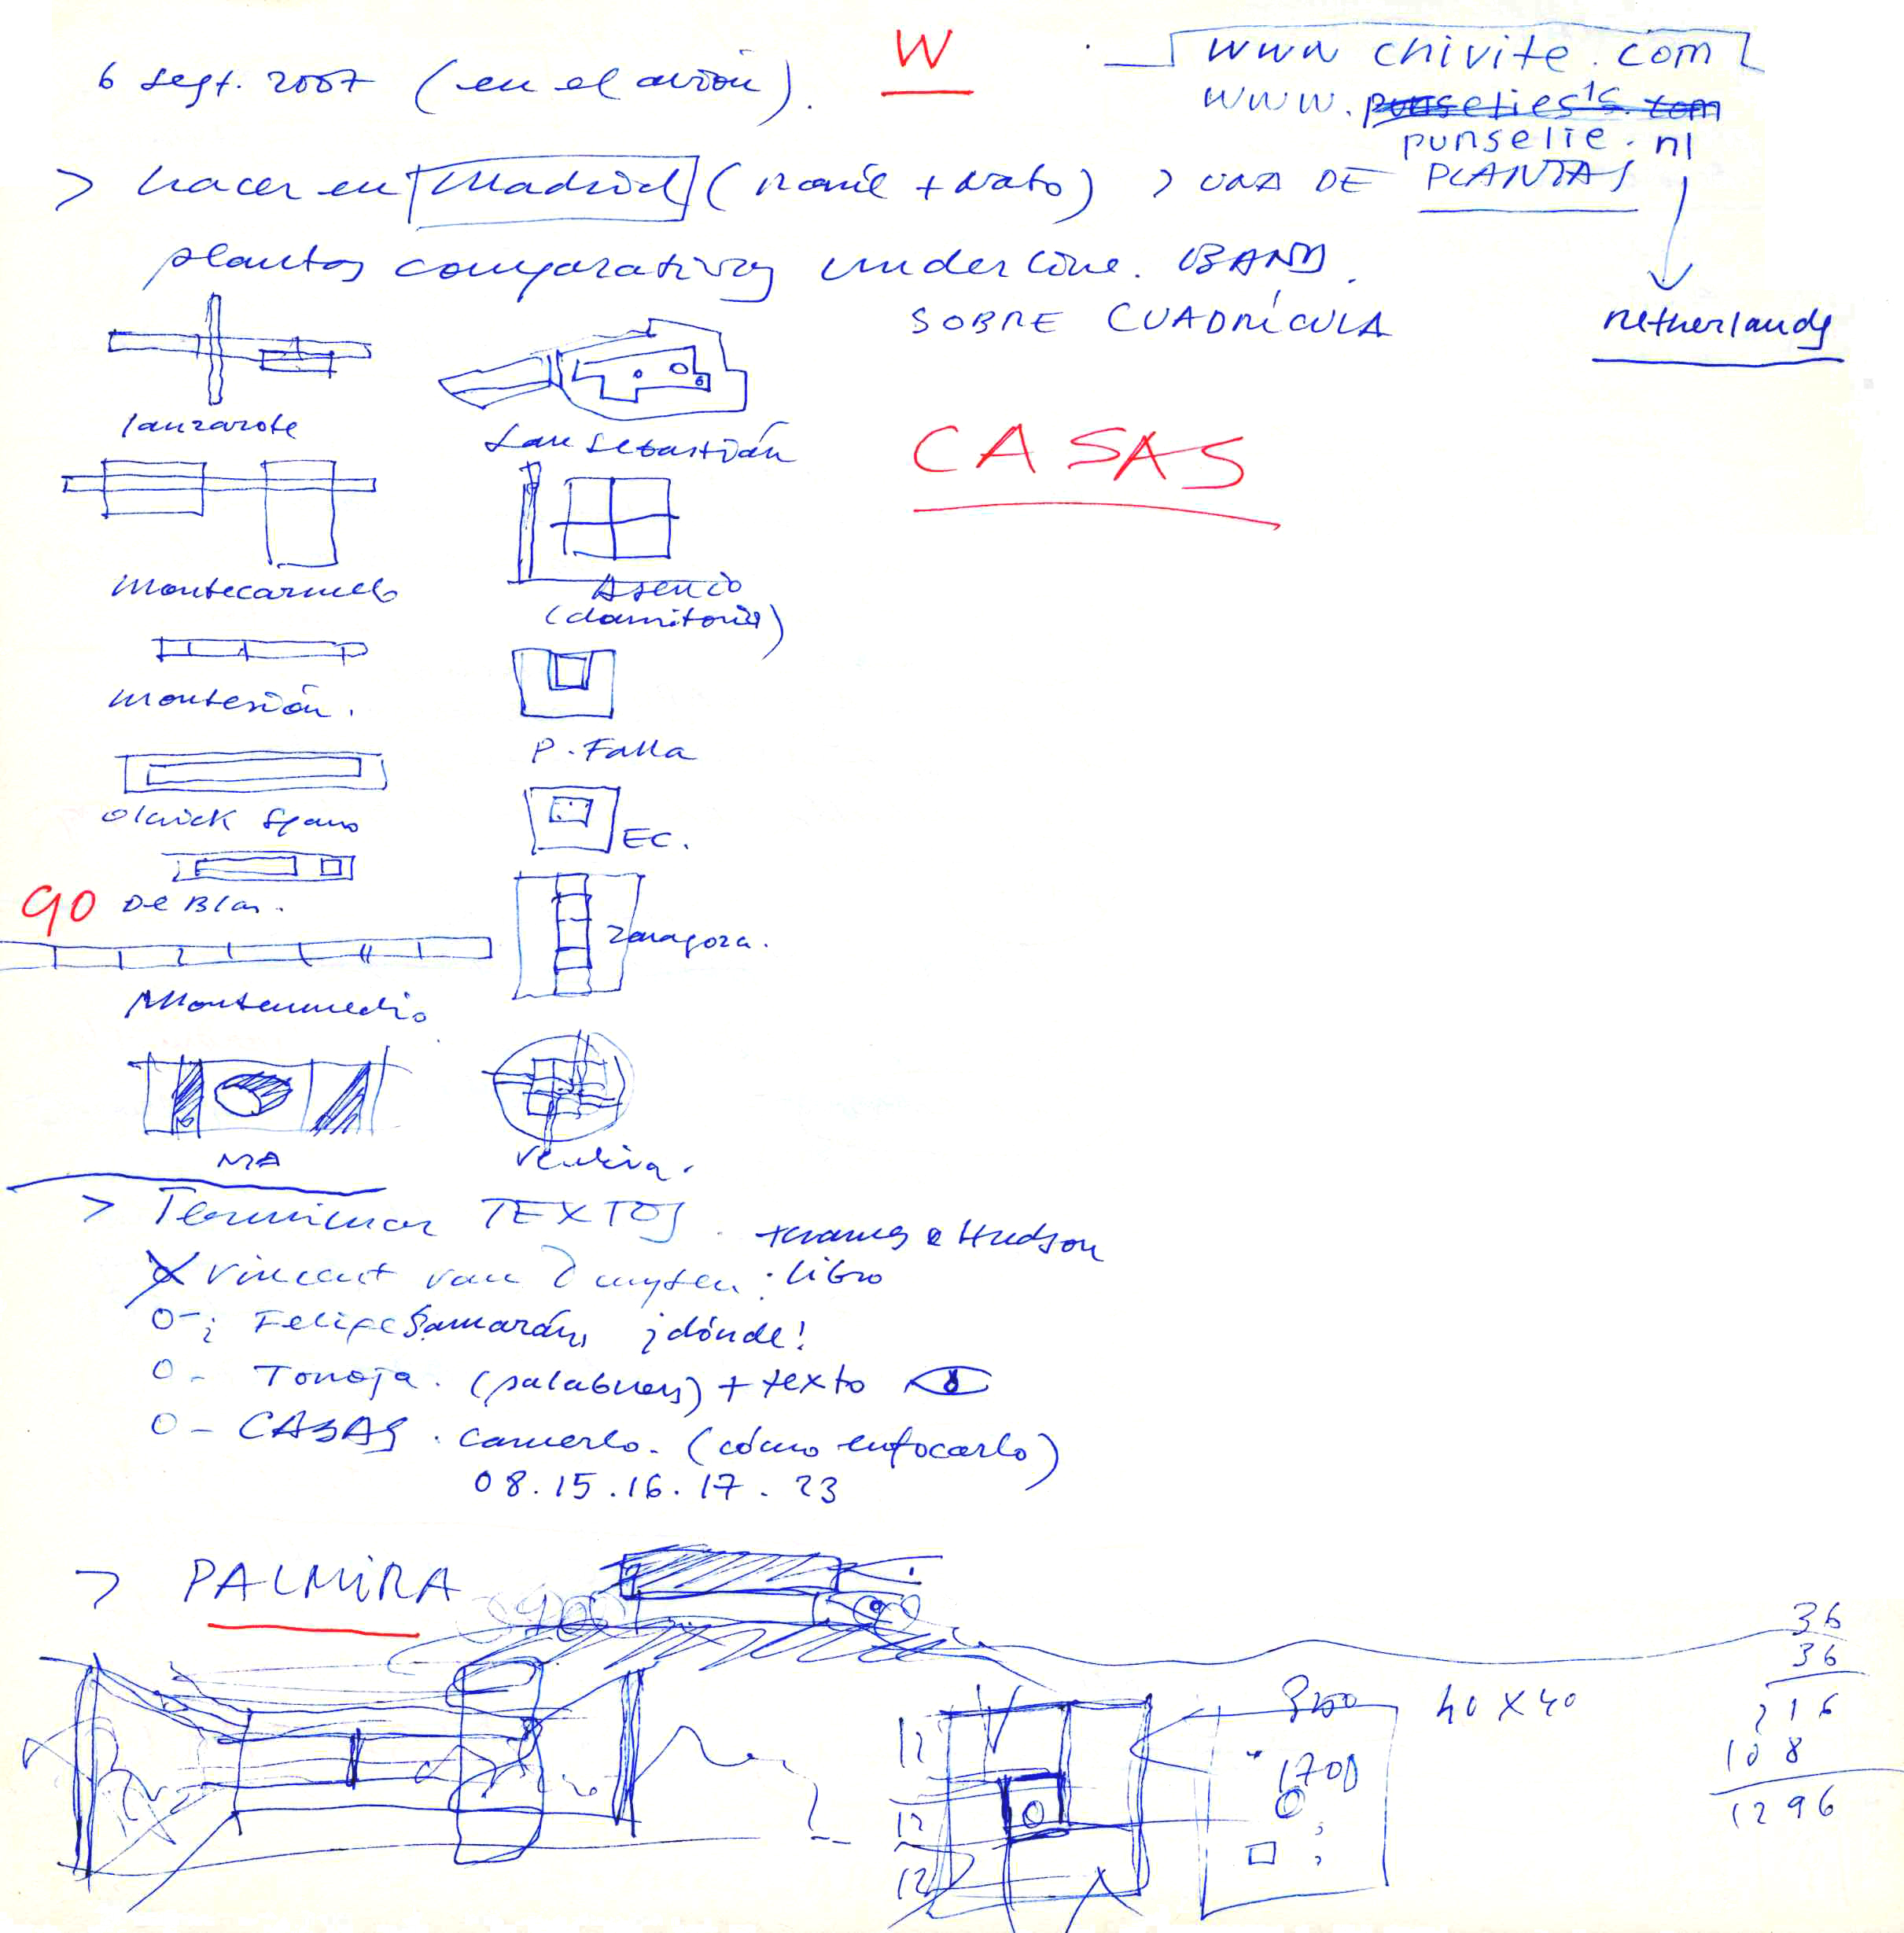 6 sept. 2007 (en el avión).
W
www chivite.com
www.
punselie.nl
> hacer en Madrid ( + ) > UNA DE PLANTAS
plantas comparativas underline.
SOBRE CUADRÍCULA
netherlands
lanzarote
San Sebastián
CASAS
Montecarmelo
Asencio
(dormitorio)
Montesión.
P. Falla
Olnick Spanu
EC.
90 De Blas.
Zaragoza.
Montenmedio
MA
> Terminar TEXTOS.
thames & Hudson
X vincent van Duysen: libro
O-¿ Felipe Samarán, ¡dónde!
O- Tonoja. (palabras) + texto
O- CASAS. camerlo. (cómo enfocarlo)
08.15.16.17.23
> PALMIRA
36
36
216
108
1296
40 X 40
1700
12
12
12